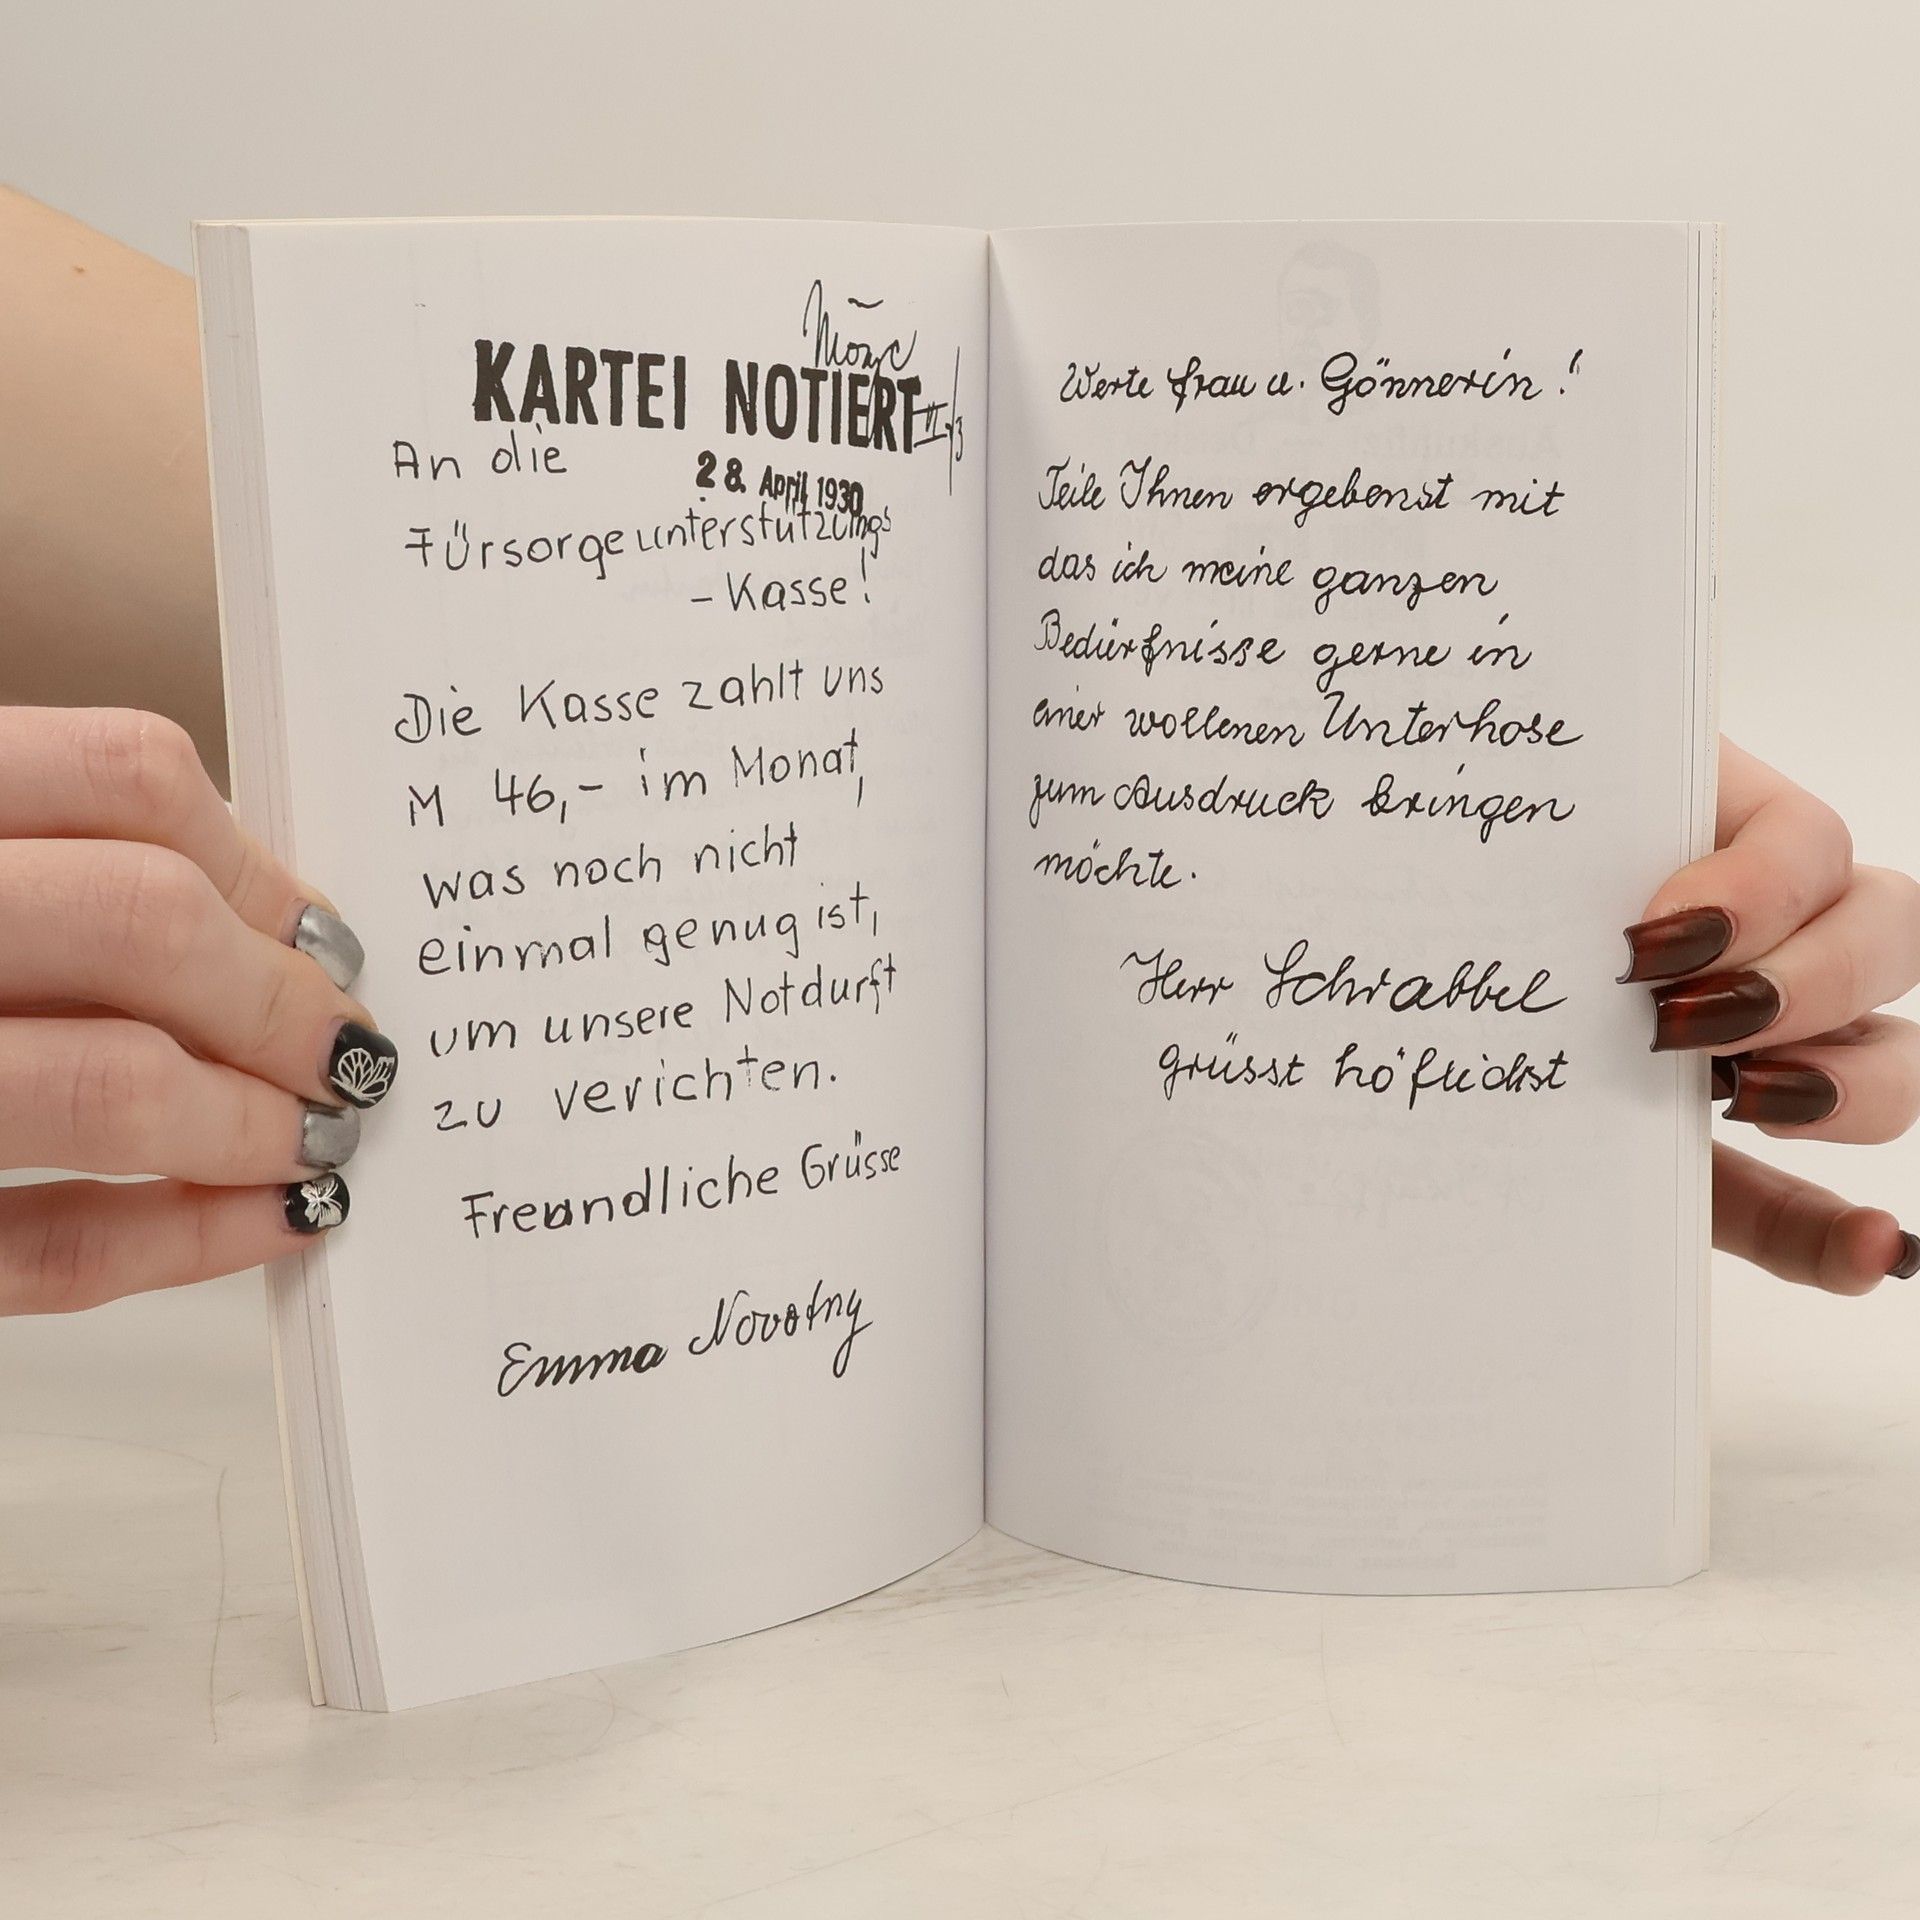 KARTEI NOTIERT
An die
28. April 1930
Fürsorgeunterstützungs
– Kasse!
Die Kasse zahlt uns
M 46,– im Monat,
was noch nicht
einmal genug ist,
um unsere Notdurft
zu verichten.
Freundliche Grüsse
Emma Novotny
Werte Frau u. Gönnerin!
Teile Ihnen ergebenst mit
das ich meine ganzen
Bedürfnisse gerne in
einer wollenen Unterhose
zum Ausdruck bringen
möchte.
Herr Schrabbel
grüsst höflichst